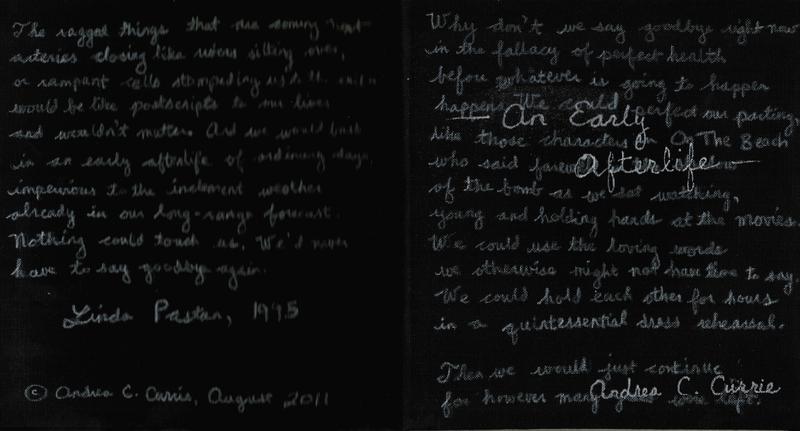 The ragged things that are coming next
arteries closing like rivers silting over,
or rampant cells stampeding us to the
would be like postscripts to our lives
and wouldn't matter. And we would bask
in an early afterlife of ordinary days,
impervious to the inclement weather
already in our long-range forecast.
Nothing could touch us. We'd never
have to say goodbye again.
Linda Pastan, 1995
© Andrea C. Currie, August 2011
Why don't we say goodbye right now
in the fallacy of perfect health
before whatever is going to happen
happens. We could perfect our parting,
An Early
like those characters in On The Beach
who said
Afterlife
of the bomb as we sat watching,
young and holding hands at the movies.
We could use the loving words
we otherwise might not have time to say.
We could hold each other for hours
in a quintessential dress rehearsal.
Then we would just continue
Andrea C. Currie
for however many were left.